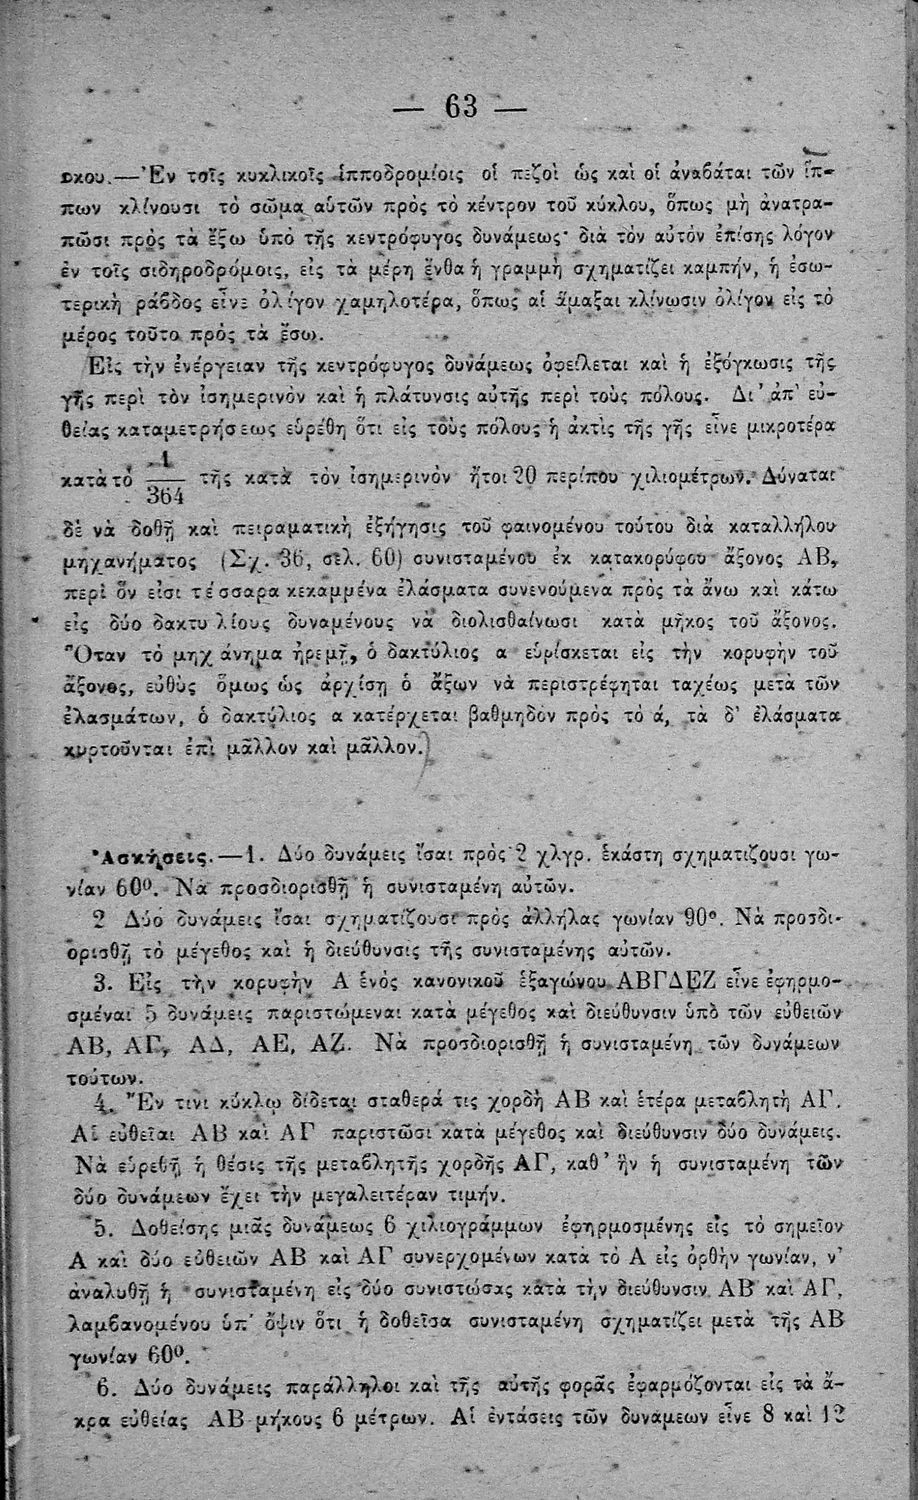 — 63 —
σκου.—Ἐν τοῖς κυκλικοῖς ἱπποδρομίοις οἱ πεζοὶ ὡς καὶ οἱ ἀναβάται τῶν ἵπ-
πων κλίνουσι τὸ σῶμα αὐτῶν πρὸς τὸ κέντρον τοῦ κύκλου, ὅπως μὴ ἀνατρα-
πῶσι πρὸς τὰ ἔξω ὑπὸ τῆς κεντρόφυγος δυνάμεως· διὰ τὸν αὐτόν ἐπίσης λόγον
ἐν τοῖς σιδηροδρόμοις, εἰς τὰ μέρη ἔνθα ἡ γραμμὴ σχηματίζει καμπήν, ἡ ἐσω-
τερικὴ ῥάβδος εἶνε ὀλίγον χαμηλοτέρα, ὅπως αἱ ἅμαξαι κλίνωσιν ὀλίγον εἰς τὸ
μέρος τοῦτο πρὸς τὰ ἔσω.
Εἰς τὴν ἐνέργειαν τῆς κεντρόφυγος δυνάμεως ὀφείλεται καὶ ἡ ἐξόγκωσις τῆς
γῆς περὶ τὸν ἰσημερινὸν καὶ ἡ πλάτυνσις αὐτῆς περὶ τοὺς πόλους. Δι' ἀπ' εὐ-
θείας καταμετρήσεως εὑρέθη ὅτι εἰς τοὺς πόλους ἡ ἀκτὶς τῆς γῆς εἶνε μικροτέρα
κατὰ τὸ 1/364 τῆς κατὰ τὸν ἰσημερινὸν ἤτοι 20 περίπου χιλιομέτρων. Δύναται
δὲ νὰ δοθῇ καὶ πειραματικὴ ἐξήγησις τοῦ φαινομένου τούτου διὰ καταλλήλου
μηχανήματος (Σχ. 36, σελ. 60) συνισταμένου ἐκ κατακορύφου ἄξονος ΑΒ,
περὶ ὃν εἰσι τέσσαρα κεκαμμένα ἐλάσματα συνενούμενα πρὸς τὰ ἄνω καὶ κάτω
εἰς δύο δακτυλίους δυναμένους νὰ διολισθαίνωσι κατὰ μῆκος τοῦ ἄξονος.
Ὅταν τὸ μηχάνημα ἠρεμῇ, ὁ δακτύλιος α εὑρίσκεται εἰς τὴν κορυφὴν τοῦ
ἄξονος, εὐθὺς ὅμως ὡς ἀρχίσῃ ὁ ἄξων νὰ περιστρέφηται ταχέως μετὰ τῶν
ἐλασμάτων, ὁ δακτύλιος α κατέρχεται βαθμηδὸν πρὸς τὸ ά, τὰ δ' ἐλάσματα
κυρτοῦνται ἐπὶ μᾶλλον καὶ μᾶλλον.
Ἀσκήσεις.—1. Δύο δυνάμεις ἴσαι πρὸς 2 χλγρ. ἑκάστη σχηματίζουσι γω-
νίαν 60⁰. Νὰ προσδιορισθῇ ἡ συνισταμένη αὐτῶν.
2 Δύο δυνάμεις ἴσαι σχηματίζουσι πρὸς ἀλλήλας γωνίαν 90⁰. Νὰ προσδι-
ορισθῇ τὸ μέγεθος καὶ ἡ διεύθυνσις τῆς συνισταμένης αὐτῶν.
3. Εἰς τὴν κορυφὴν Α ἑνὸς κανονικοῦ ἑξαγώνου ΑΒΓΔΕΖ εἶνε ἐφηρμο-
σμέναι 5 δυνάμεις παριστώμεναι κατὰ μέγεθος καὶ διεύθυνσιν ὑπὸ τῶν εὐθειῶν
ΑΒ, ΑΓ, ΑΔ, ΑΕ, ΑΖ. Νὰ προσδιορισθῇ ἡ συνισταμένη τῶν δυνάμεων
τούτων.
4. Ἔν τινι κύκλῳ δίδεται σταθερά τις χορδὴ ΑΒ καὶ ἑτέρα μεταβλητὴ ΑΓ.
Αἱ εὐθεῖαι ΑΒ καὶ ΑΓ παριστῶσι κατὰ μέγεθος καὶ διεύθυνσιν δύο δυνάμεις.
Νὰ εὑρεθῇ ἡ θέσις τῆς μεταβλητῆς χορδῆς ΑΓ, καθ' ἣν ἡ συνισταμένη τῶν
δύο δυνάμεων ἔχει τὴν μεγαλειτέραν τιμήν.
5. Δοθείσης μιᾶς δυνάμεως 6 χιλιογράμμων ἐφηρμοσμένης εἰς τὸ σημεῖον
Α καὶ δύο εὐθειῶν ΑΒ καὶ ΑΓ συνερχομένων κατὰ τὸ Α εἰς ὀρθὴν γωνίαν, ν'
ἀναλυθῇ ἡ συνισταμένη εἰς δύο συνιστώσας κατὰ τὴν διεύθυνσιν ΑΒ καὶ ΑΓ,
λαμβανομένου ὑπ' ὄψιν ὅτι ἡ δοθεῖσα συνισταμένη σχηματίζει μετὰ τῆς ΑΒ
γωνίαν 60⁰.
6. Δύο δυνάμεις παράλληλοι καὶ τῆς αὐτῆς φορᾶς ἐφαρμόζονται εἰς τὰ ἄ-
κρα εὐθείας ΑΒ μήκους 6 μέτρων. Αἱ ἐντάσεις τῶν δυνάμεων εἶνε 8 καὶ 12